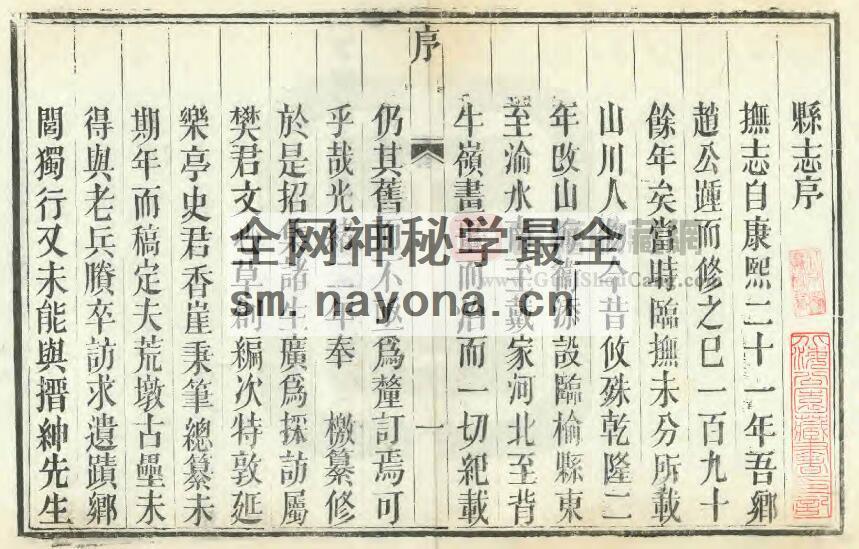 縣志序
撫志自康熙二十一年吾鄉
趙公踵而修之已一百九十
餘年矣當時臨撫未分所載
山川人物今昔攸殊乾隆二
年改山海衛添設臨榆縣東
至渝水南至戴家河北至背
牛嶺畫而治而一切紀載
仍其舊而不為釐訂焉可
乎哉光緒年奉 檄纂修
於是招集諸生廣為採訪屬
樊君文草創編次特敦延
樂亭史君香崖秉筆總纂未
期年而稿定夫荒墩占壘未
得與老兵賸卒訪求遺蹟鄉
閭獨行又未能與搢紳先生
序
一
全网神秘学最全
sm.nayona.cn